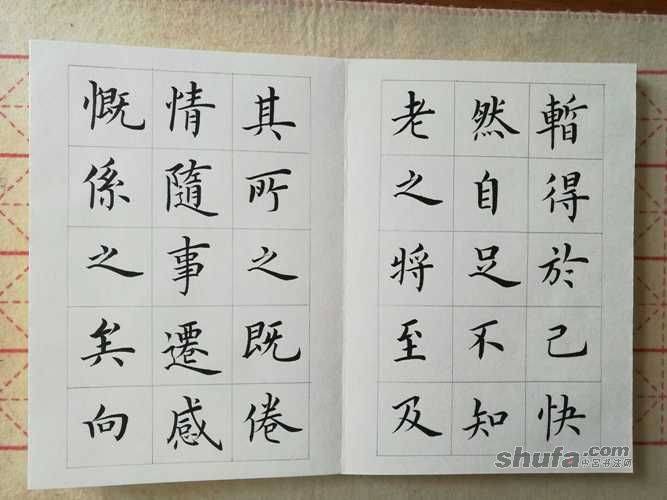 暫得於己快
然自足不知
老之将至及
其所之既倦
情隨事遷感
慨係之矣向
shufa.com
中国书法网